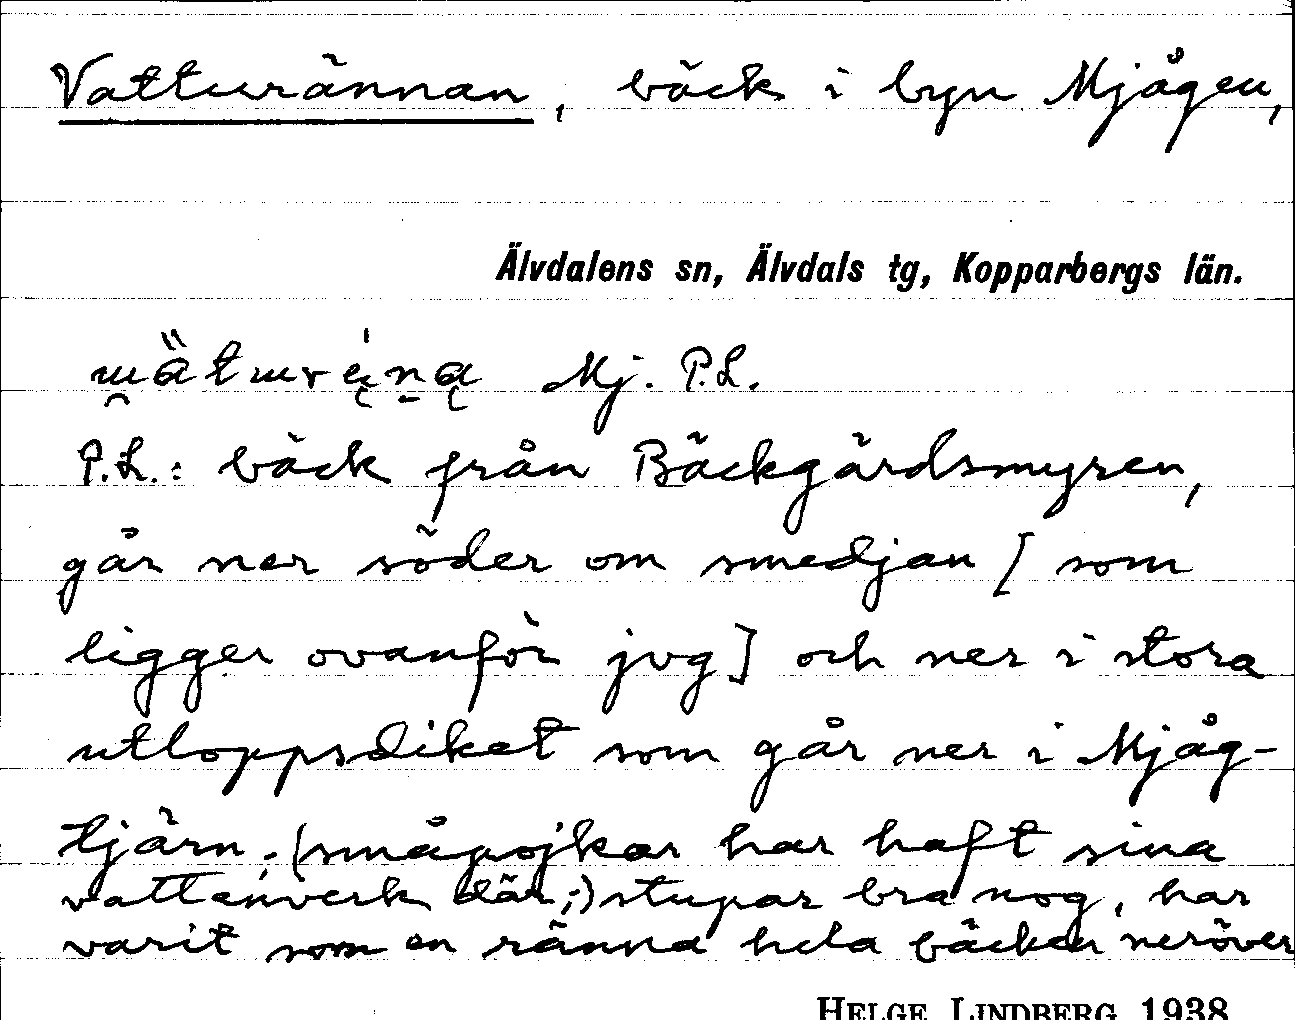 Vatturännan, bäck i byn Mjågen,
Älvdalens sn, Älvdals tg, Kopparbergs län.
Mj. P.L.
P.L.: bäck från Bäckgårdsmyren,
går ner söder om smedjan [som
ligger ovanför jvg] och ner i stora
utloppsdiket som går ner i Mjåg-
tjärn; (småpojkar har haft sina
vattenverk där;) stupar bra nog, har
varit som en ränna hela bäcken neröver
HELGE LINDBERG 1938